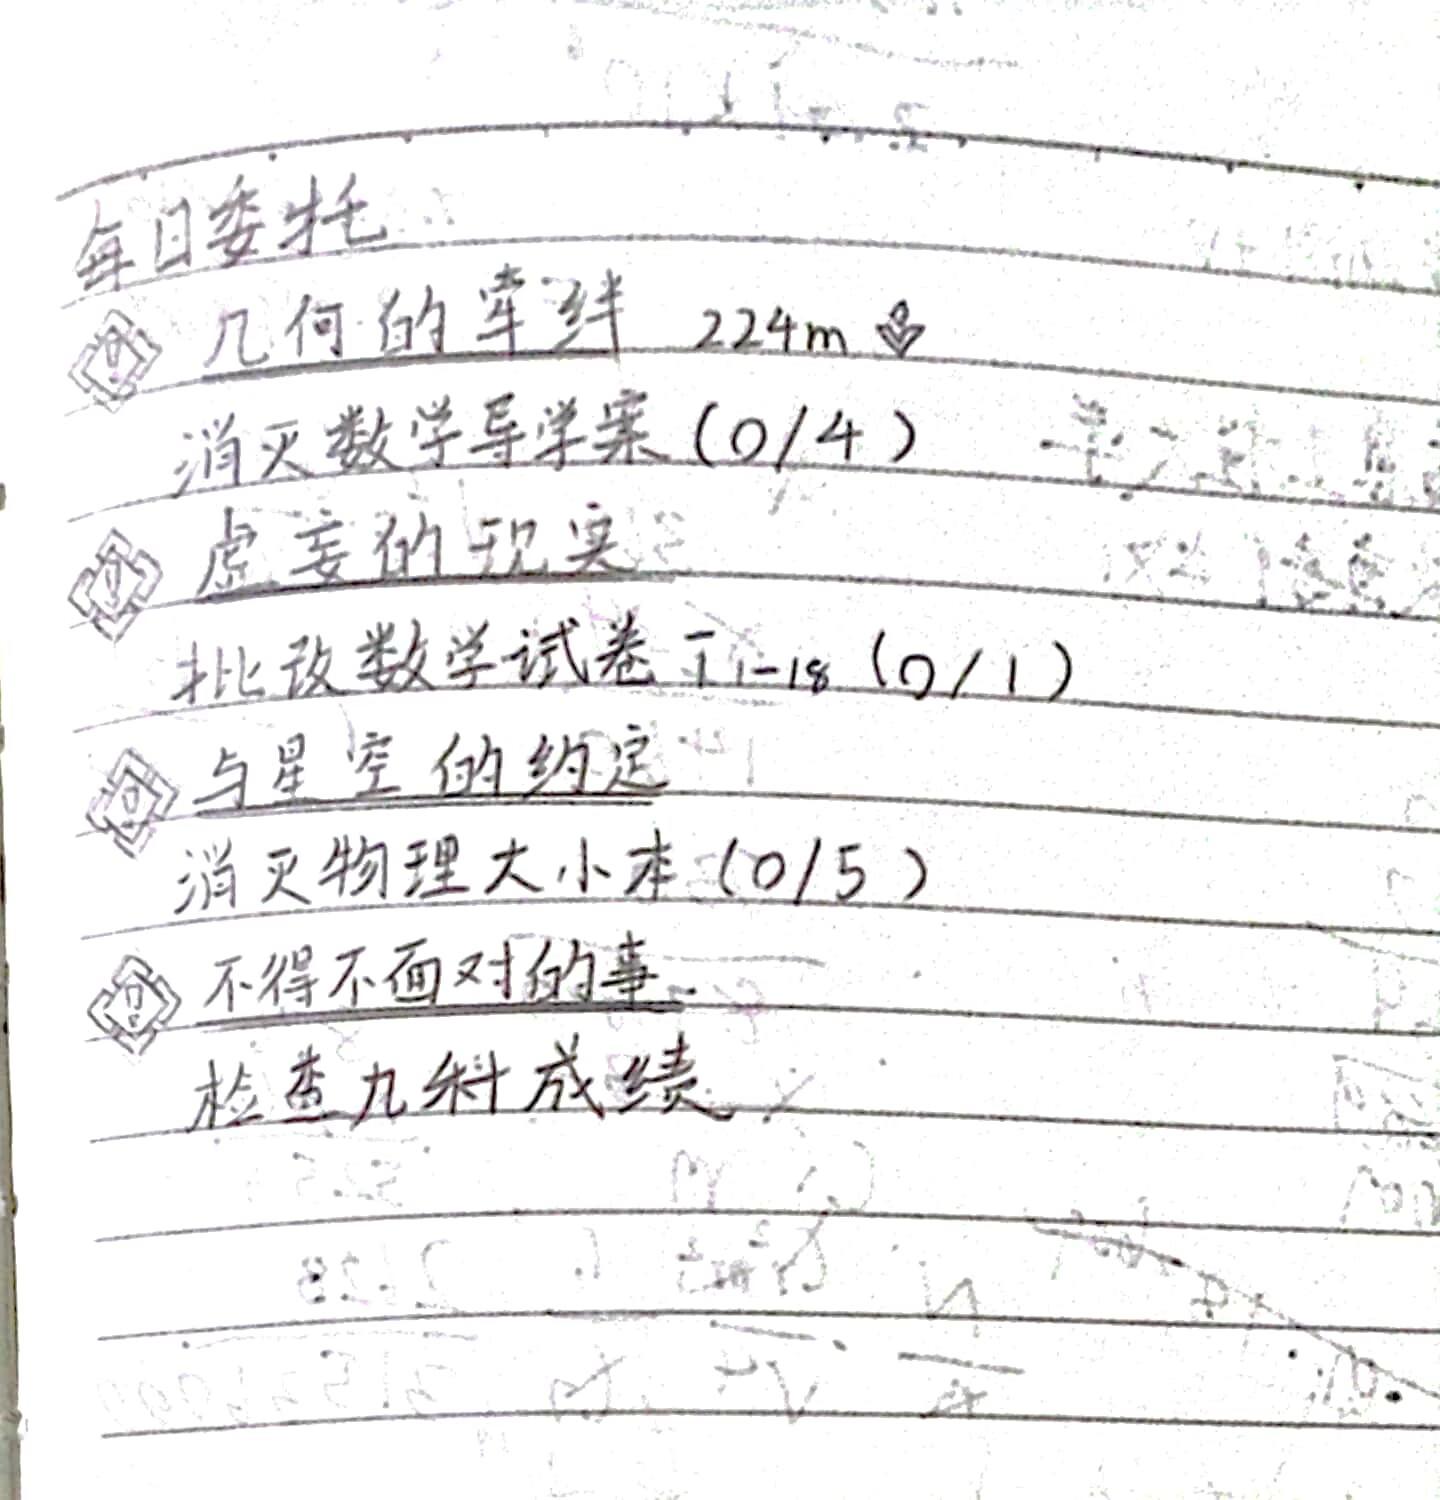 每日委托
几何的牵绊 224m
消灭数学导学案(0/4)
虚妄的现实
批改数学试卷T1-18(0/1)
与星空的约定
消灭物理大小本(0/5)
不得不面对的事.
检查九科成绩